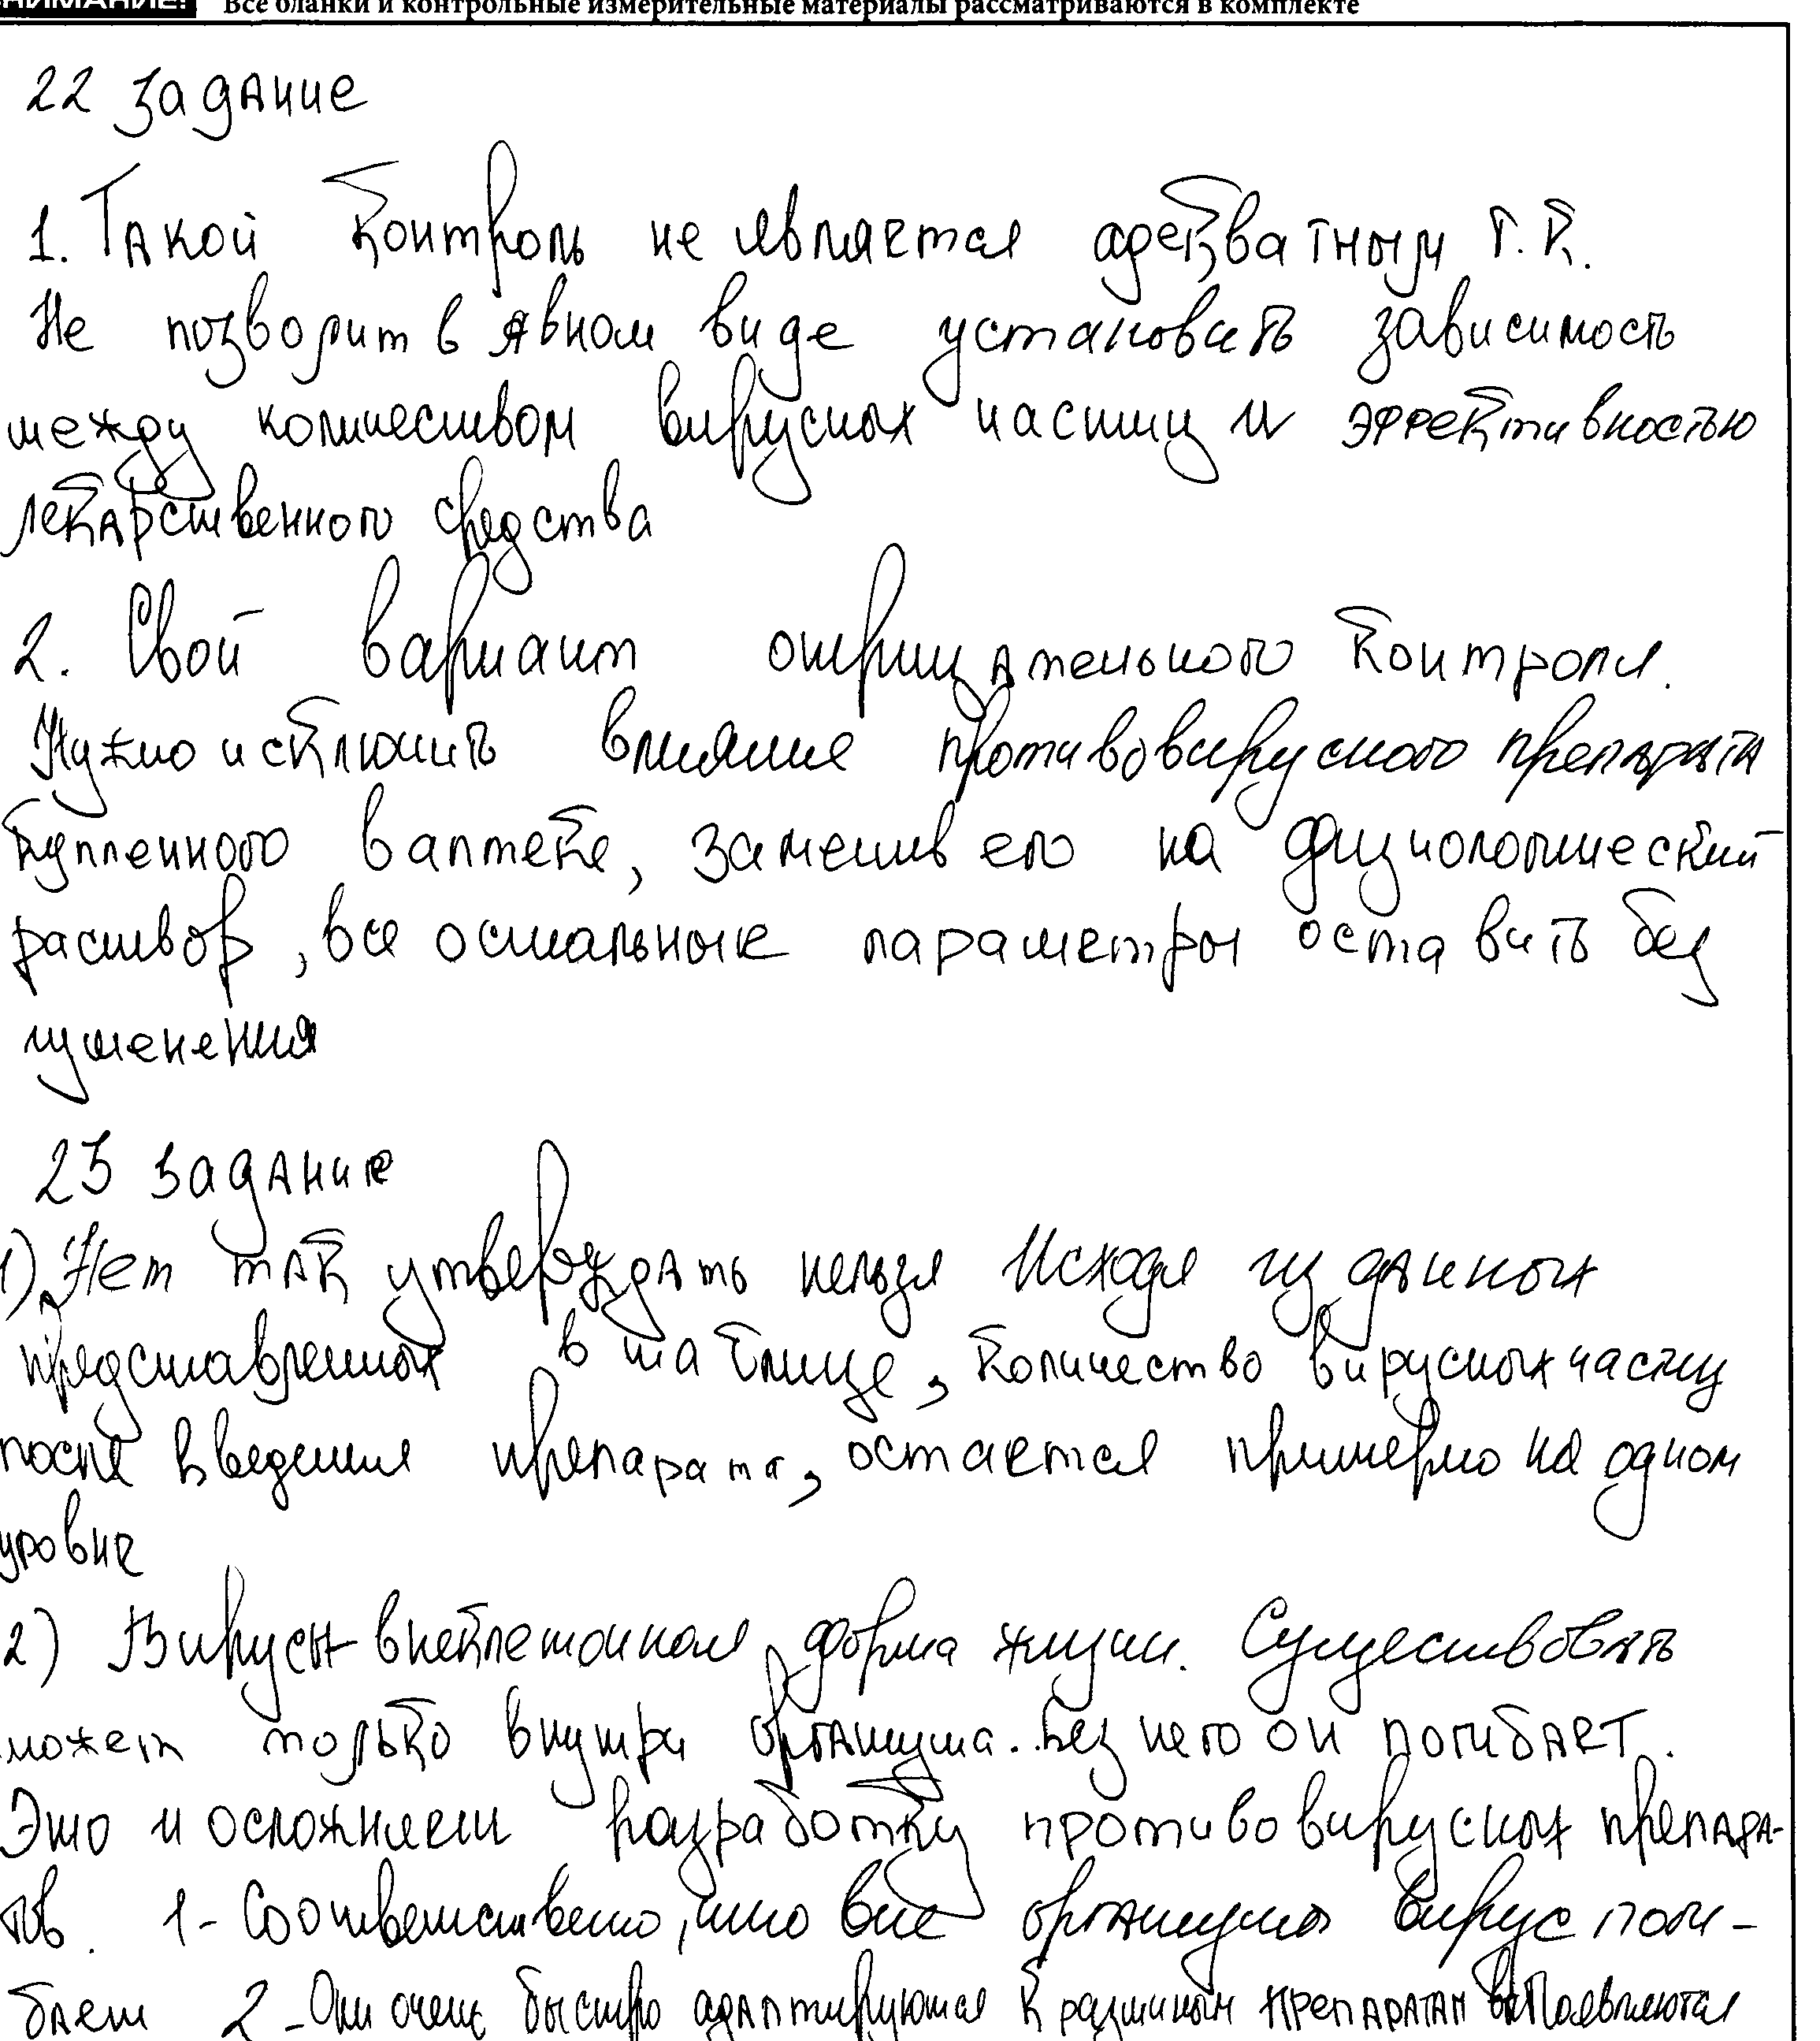 ВНИМАНИЕ! Все бланки и контрольные измерительные материалы рассматриваются в комплекте
22 задание
1. Такой контроль не является адекватным т.к.
Не позволит в явном виде установить зависимость
между количеством вирусных частиц и эффективностью
лекарственного средства
2. Свой вариант отрицательного контроля.
Нужно исключить влияние противовирусного препарата
купленного в аптеке, заменив его на физиологический
раствор, все остальные параметры оставить без
изменения
23 задание
1) Нет так утверждать нельзя Исходя из данных
представленных в таблице, количество вирусных частиц
после введения препарата, остается примерно на одном
уровне
2) Вирусы-внеклеточная форма жизни. Существовать
может только внутри организма. Без него он погибает.
Это и осложняет разработку противовирусных препара-
тов. 1- Соответственно, что вне организма вирус поги-
бает 2-Они очень быстро адаптируются к различным препаратам появляются